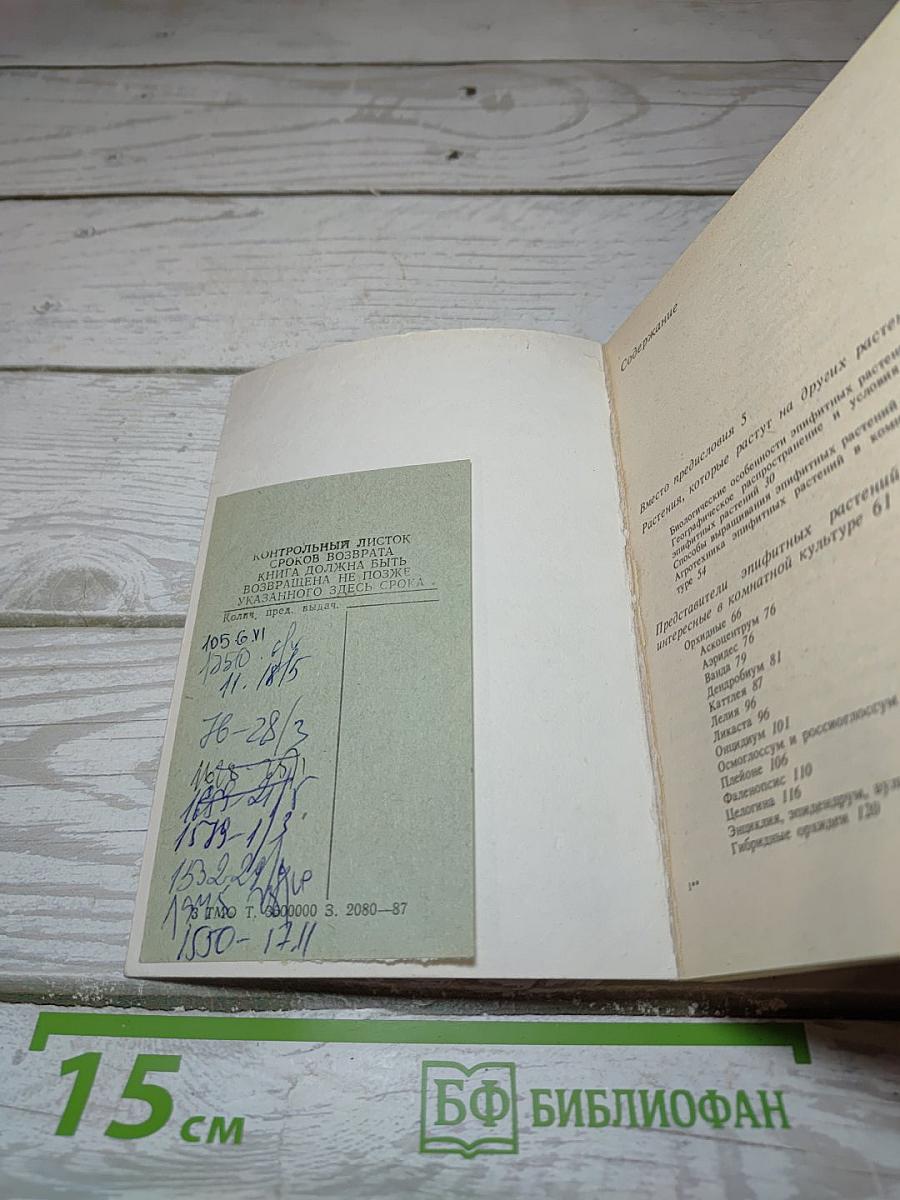 КОНТРОЛЬНЫЙ ЛИСТОК
СРОКОВ ВОЗВРАТА
КНИГА ДОЛЖНА БЫТЬ
ВОЗВРАЩЕНА НЕ ПОЗЖЕ
УКАЗАННОГО ЗДЕСЬ СРОКА
Колич. пред. выдач.
105 6.VI
1250
11. 18/5
28/3
1579-1/3
1532
1550- 17.11
3 ТМО Т. 3000000 З. 2080—87
Содержание
Вместо предисловия 5
Растения, которые растут на других
Биологические особенности эпифитных
Географическое распространение и условия
эпифитных растений 30
Способы выращивания эпифитных растений
Агротехника эпифитных растений в
туре 54
Представители эпифитных растений,
интересные в комнатной культуре 61
Орхидные 66
Аскоцентрум 76
Аэридес 76
Ванда 79
Дендробиум 81
Каттлея 87
Лелия 96
Ликаста 96
Онцидиум 101
Осмоглоссум и россиоглоссум
Плейоне 106
Фаленопсис 110
Целогина 116
Энциклия, эпидендрум,
Гибридные орхидеи 120
1**
15 см
БФ БИБЛИОФАН